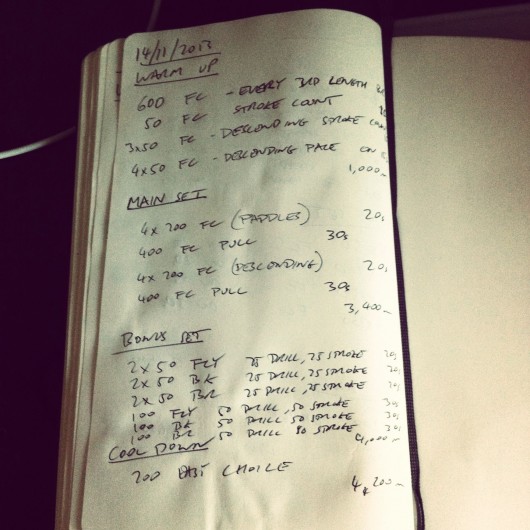 14/11/2013
WARM UP
600 FC - EVERY 3RD LENGTH
50 FC STROKE COUNT
3x50 FC - DESCENDING STROKE
4x50 FC - DESCENDING PACE ON
1,000m
MAIN SET
4x200 FC (PADDLES) 20s
400 FC PULL 30s
4x200 FC (DESCENDING) 20s
400 FC PULL 30s
3,400m
BONUS SET
2x50 FLY 25 DRILL, 25 STROKE 20s
2x50 BK 25 DRILL, 25 STROKE 20s
2x50 BR 25 DRILL, 25 STROKE 20s
100 FLY 50 DRILL, 50 STROKE 30s
100 BK 50 DRILL 50 STROKE 30s
100 BR 50 DRILL 50 STROKE 30s
4,000m
COOL DOWN
200 EASY CHOICE
4,200m